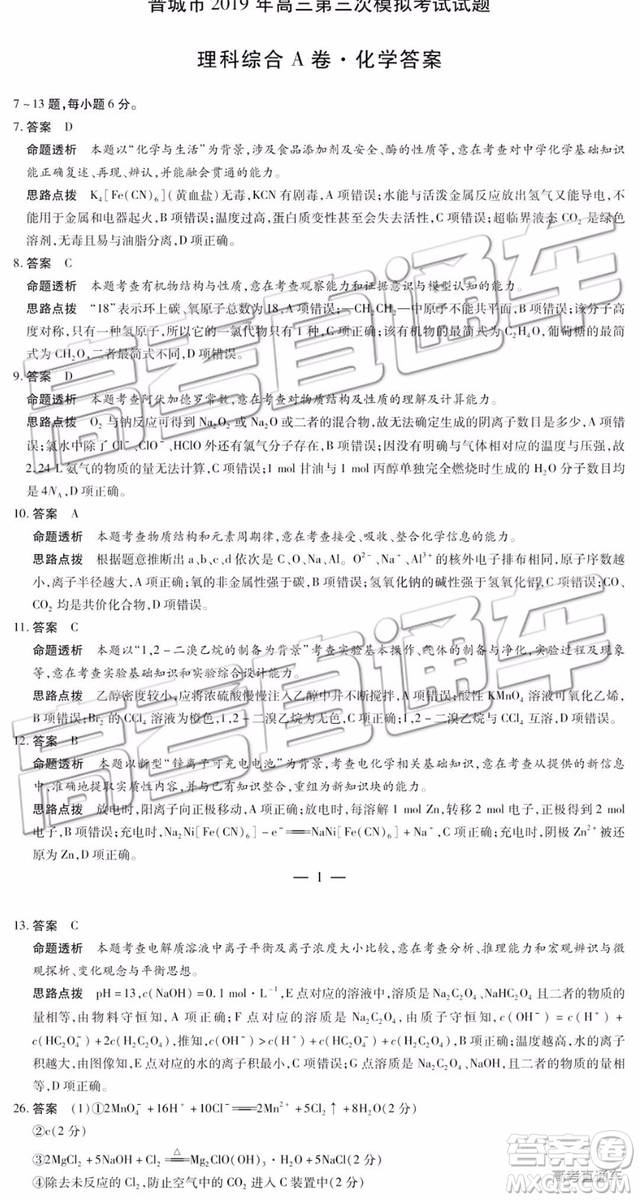 晋城市 2019 年高三第三次模拟考试试题
理科综合 A 卷·化学答案
7~13 题,每小题 6 分。
7. 答案 D
命题透析 本题以“化学与生活”为背景,涉及食品添加剂及安全、酶的性质等,意在考查对中学化学基础知识
能正确复述、再现、辨认,并能融会贯通的能力。
思路点拨 K₄[Fe(CN)₆](黄血盐)无毒,KCN 有剧毒,A 项错误;水能与活泼金属反应放出氢气又能导电,不
能用于金属和电器起火,B 项错误;温度过高,蛋白质变性甚至会失去活性,C 项错误;超临界液态 CO₂ 是绿色
溶剂,无毒且易与油脂分离,D 项正确。
8. 答案 C
命题透析 本题考查有机物结构与性质,意在考查观察能力和证据意识与模型认知的能力。
思路点拨 “18”表示环上碳、氧原子总数为 18,A 项错误;—CH₂CH₂—中原子不能共平面,B 项错误;该分子高
度对称,只有一种氢原子,所以它的一氯代物只有 1 种,C 项正确;该有机物的最简式为 C₂H₄O,葡萄糖的最简
式为 CH₂O,二者最简式不同,D 项错误。
9. 答案 D
命题透析 本题考查阿伏加德罗常数,意在考查对物质结构及性质的理解及计算能力。
思路点拨 O₂ 与钠反应可得到 Na₂O₂ 或 Na₂O 或二者的混合物,故无法确定生成的阴离子数目是多少,A 项错
误;氯水中除了 Cl⁻、ClO⁻、HClO 外还有氯气分子,B 项错误;因没有说明与气体物质的量有关的温度与压强,故
2.24 L 氨气的物质的量无法计算,C 项错误;1 mol 甘油与 1 mol 丙醇单独完全燃烧时生成的 H₂O 分子数目均
是 4Nₐ,D 项正确。
10. 答案 A
命题透析 本题考查物质结构和元素周期律,意在考查接受、吸收、整合化学信息的能力。
思路点拨 根据题意推断出 a、b、c、d 依次是 C、O、Na、Al。O²⁻、Na⁺、Al³⁺ 的核外电子排布相同,原子序数越
小,离子半径越大,A 项正确;氧的非金属性强于碳,B 项错误;氢氧化钠的碱性强于氢氧化铝,C 项错误;CO、
CO₂ 均是共价化合物,D 项错误。
11. 答案 C
命题透析 本题以“1,2-二溴乙烷的制备为背景”考查实验基本操作、气体的制备与净化,意在考查实验与探
究、意在考查实验基础知识和实验综合设计的能力。
思路点拨 乙醇密度较小,应将浓硫酸慢慢注入乙醇中并不断搅拌,A 项错误;酸性 KMnO₄ 溶液可氧化乙烯,
B 项错误;Br₂ 的 CCl₄ 溶液为橙色,1,2-二溴乙烷是无色,C 项正确;1,2-二溴乙烷与 CCl₄ 互溶,D 项错误。
12. 答案 B
命题透析 本题以新型“锌离子可充电电池”为背景,考查电化学相关基础知识,意在考查从提供的新信息中,
准确地提取实质性内容,并与已有知识块整合重组为新知识块的能力。
思路点拨 放电时,阳离子向正极移动,A 项正确;放电时,每溶解 1 mol Zn,转移 2 mol
电子,B 项错误;充电时,Na₂Ni[Fe(CN)₆]-e⁻══NaNi[Fe(CN)₆]+Na⁺,C 项正确;充电时,阴极 Zn²⁺ 被还
原为 Zn,D 项正确。
— 1 —
13. 答案 C
命题透析 本题考查电解质溶液中离子平衡及离子浓度大小比较,意在考查分析、推理能力和宏观辨识与微
观探析、变化观念与平衡思想。
思路点拨 pH=13,c(NaOH)=0.1 mol·L⁻¹,E 点对应的溶液中,溶质是 Na₂C₂O₄、NaHC₂O₄ 且二者的物质的
量相等,由物料守恒可知,A 项正确;F 点对应的溶液的溶质是 Na₂C₂O₄,由质子守恒知,c(OH⁻)=c(H⁺)+
c(HC₂O₄⁻)+2c(H₂C₂O₄),推知 c(OH⁻)>c(H⁺)+c(HC₂O₄⁻)+c(H₂C₂O₄),B 项正确;温度越高,水的离子
积越大,由图知 E 点对应的水的离子积最小,C 项错误;G 点溶质是 NaOH、Na₂C₂O₄,且二者的物质的量相
等,D 项正确。
26. 答案 (1)①2MnO₄⁻+16H⁺+10Cl⁻══2Mn²⁺+5Cl₂↑+8H₂O(2 分)
②c(2 分)
③2MgCl₂+5NaOH+Cl₂ ══△ Mg₂ClO(OH)₃·H₂O+5NaCl(2 分)
④除去未反应的 Cl₂,防止空气中的 CO₂ 进入 C 装置(2 分)
高考直通车
答案圈
高考直通车